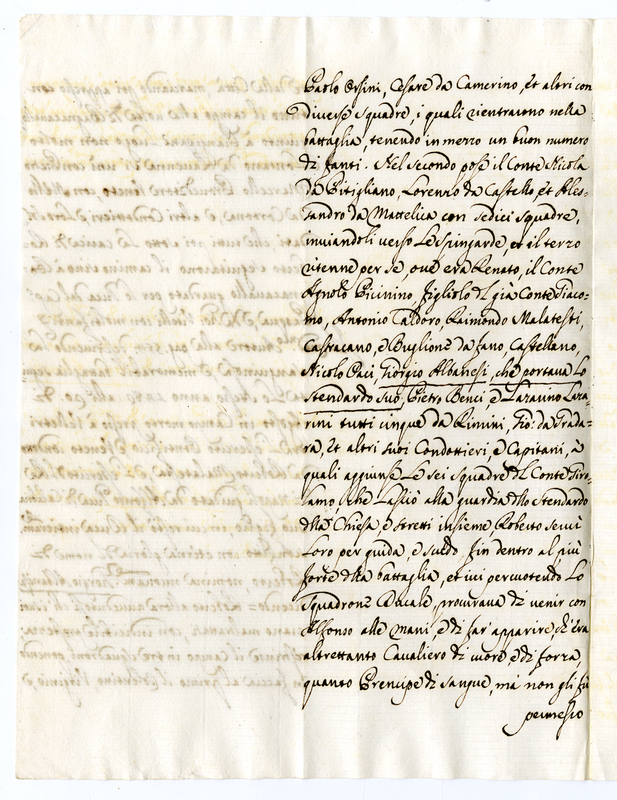 Paolo Orsini, Cesare da Camerino, et altri con
diverse squadre, i quali rientrarono nella
battaglia, tenendo in mezzo un buon numero
di fanti. Nel secondo pose il Conte Nicola
da Pitigliano, Lorenzo da Castello, et Ales-
sandro da Mattelica con sedici squadre,
inviandoli verso Le Spingarde, et il terzo
ritenne per se, ove era Renato, il Conte
Agnolo Picinino, figliolo del già Conte Giaco-
mo, Antonio Taldoro, Raimondo Malatesti,
Castracano, e Buglione da fano, Castellano,
Nicolo Paci, Giorgio Albanesi, che portava Lo
Stendardo suo, Pietro Benci, e Lazarino Laza-
rini tutti cinque da Rimini, Gio: da Grada-
ra, et altri suoi Condottieri, e Capitani, à
quali aggiunse Le sei Squadre del Conte Giro-
lamo, che Lasciò alla guardia dello Stendardo
della Chiesa e stretti insieme Roberto servì
Loro per guida, e scudo fin dentro al più
forte della battaglia, et ivi percuotendo Lo
Squadrone Ducale, procurava di venir con
Alfonso alle mani, e di far apparire, ch'era
altrettanto Cavaliero di cuore, e di forza,
quanto Prencipe di sangue, mà non gli fù
permesso